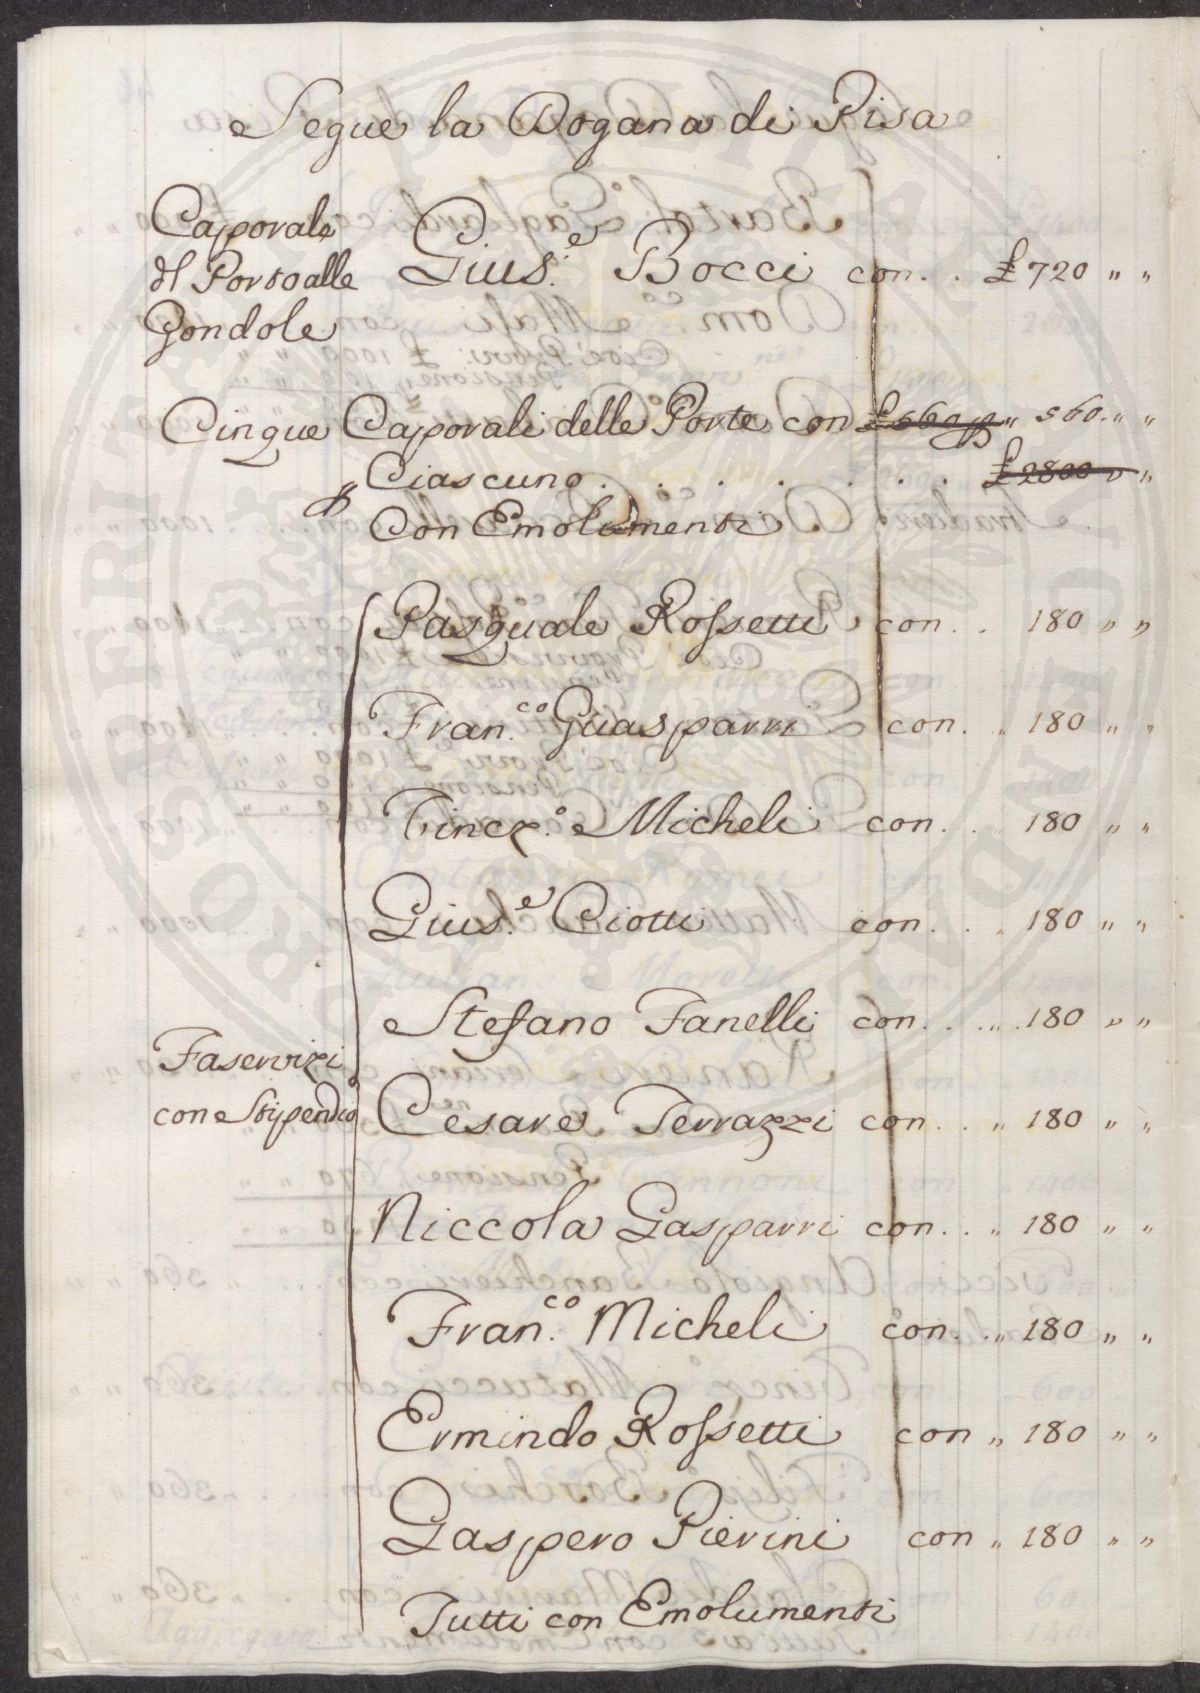 Segue la Dogana di Pisa
Caporale
dl Porto alle
Gondole
Gius.e Bocci con . . £ 720 " "
Cinque Caporali delle Porte con £ 560 p " 560. " "
p Ciascuno . . . . . . . £ 2800 " "
Con Emolumenti
Pasquale Rossetti con . . 180 " "
Fran.co Guasparri con . . 180 " "
Vincz.o Micheli con . . 180 " "
Gius.e Ciotti con . . . 180 " "
Stefano Fanelli con . . . . . 180 " "
Faservizi
con Stipendio
Cesare Terrazzi con . . " 180 " "
Niccola Gasparri con . . " 180 " "
Fran.co Micheli con . . " 180 " "
Ermindo Rossetti con " 180 " "
Gaspero Pierini con " 180 " "
Tutti con Emolumenti
PVBLICAE PROSPERITATIS